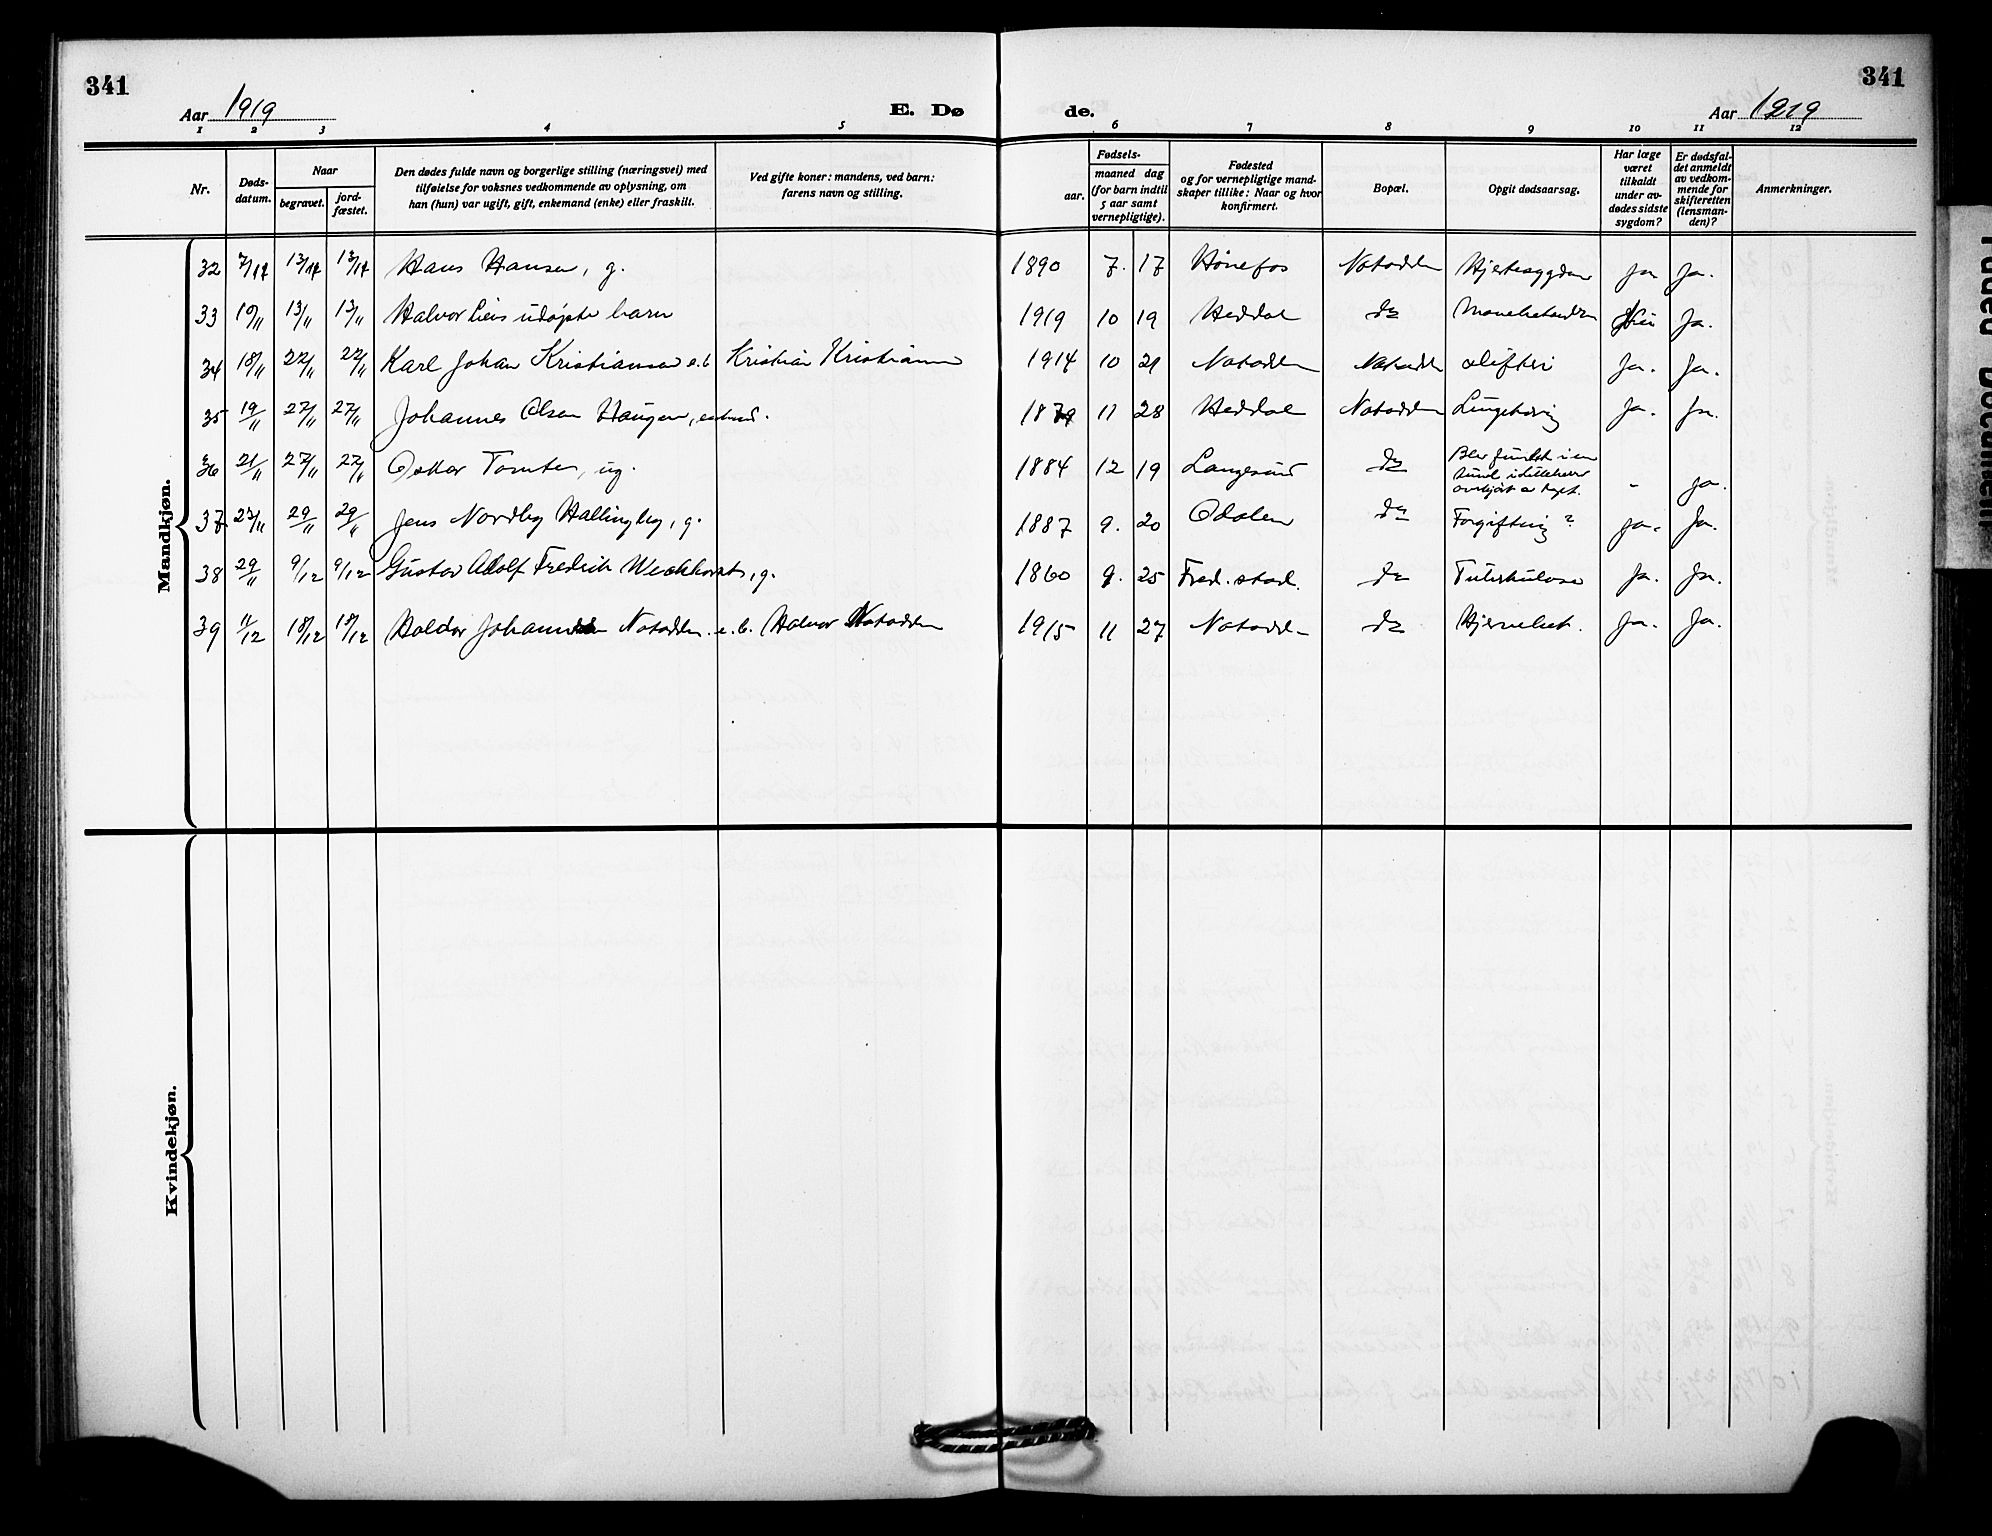 341
341
Aar 1919
E. Dø
de.
Aar 1919
1 2 3 4 5 6 7 8 9 10 11 12
Nr.
Døds-
datum.
Naar
begravet.
jord-
fæstet.
Den dødes fulde navn og borgerlige stilling (næringsvei) med
tilføielse for voksnes vedkommende av oplysning, om
han (hun) var ugift, gift, enkemand (enke) eller fraskilt.
Ved gifte koner: mandens, ved barn:
farens navn og stilling.
Fødsels-
aar.
maaned dag
(for barn indtil
5 aar samt
vernepligtige).
Fødested
og for vernepligtige mand-
skaper tillike: Naar og hvor
konfirmert.
Bopæl.
Opgit dødsaarsag.
Har læge
været
tilkaldt
under av-
dødes sidste
sygdom?
Er dødsfal-
det anmeldt
av vedkom-
mende for
skifteretten
(lensman-
den)?
Anmerkninger.
Mandkjøn.
32 7/11 13/11 13/11 Hans Hansen, g. 1890 7. 17 Hønefos Notodden Hjertesygdom ja Ja.
33 10/" 13/" 13/" Halvor Leis udøpte barn 1919 10 19 Heddal do Nei Ja.
34 18/" 22/" 22/" Karl Johan Kristiansen e.b Kristian Kristiansen 1914 10 21 Notodden Notodden difteri Ja. Ja.
35 19/" 27/" 27/" Johannes Olsen Haugen, enkem. 1879 11 28 Heddal Notodden Ja. Ja.
36 21/" 27/" 27/" Oskar Tomter, ug. 1884 12 19 Langesund do Blev fundet i en
tunel i Lilleherre
overkjørt av toget. - Ja.
37 23/" 29/" 29/" Jens Nordby Hallingby, g. 1887 9. 20 Odalen do Forgiftning? ja. Ja.
38 29/" 9/12 9/12 Gustav Adolf Fredrik Weckhorst, g. 1860 9. 25 Fred.stad. do Tuberkulose Ja. Ja.
39 11/12 18/12 18/12 Haldor Johannes Notodden. e.b. Halvor Notodden 1915 11 27 Notodd- do Hjernebet. Ja. Ja.
Kvindekjøn.